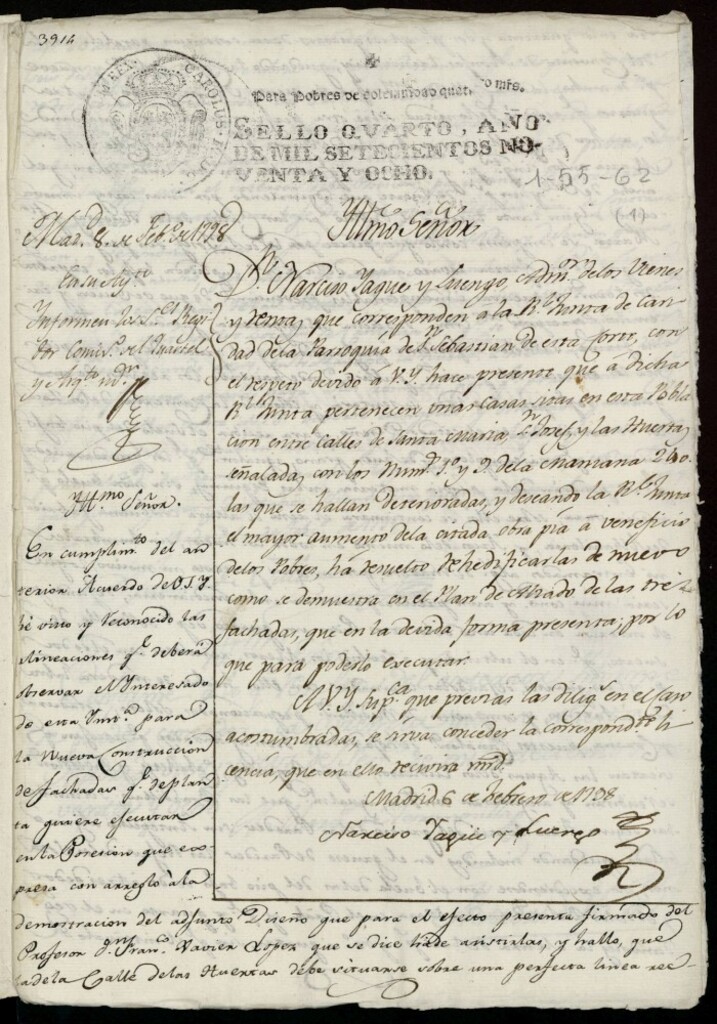 3914
CAROLUS
✠
Para Pobres de solemnidad quatro mrs.
SELLO QVARTO, AÑO
DE MIL SETECIENTOS NO-
VENTA Y OCHO.
1-55-62
(1)
Mad.d 8. de Feb.o de 1798
En su Ay.to
Informen los S.res Regi
dor Comis.o del Quartel
y Arq.to m.or
Yltmo Señor
D.n Narciso Yague y Luengo, Adm.or de los Vienes
y rentas, que corresponden a la R.l Junta de Cari
dad de la Parroquia de S.n Sebastian de esta Corte, con
el respeto devido á V.Y. hace presente que á dicha
R.l Junta pertenecen unas Casas sitas en esta Pobla
cion entre calles de Santa Maria, S.n Josef, y las Huertas,
señaladas con los Num.s 1.o y 9. de la Manzana 240.
las que se hallan deterioradas, y deseando la R.l Junta
el mayor aumento de la citada obra pia á veneficio
de los Pobres, há resuelto Rehedificarlas de nuevo
como se demuestra en el Plan de Alzado de las tres
fachadas, que en la devida forma presenta; por lo
que para poderlo executar.
A V.Y. Sup.ca que previas las dilig.s en el caso
acostumbradas, se sirva conceder la correspond.te li
cencia, que en ello recivirá mrd.
Madrid 6 de Febrero de 1798
Narciso Yagüe y Luengo
Yltt.mo Señor.
En cumplim.to del an
terior Acuerdo de V.S.Y.
hé visto y reconocido las
alineaciones q.e deberá
observar el Ynteresado
de esta Inst.a para
la Nueva Construccion
de fachadas q.e de plan
ta quiere executar
en la Posesion que ex
presa con arreglo á la
demostracion del adjunto Diseño que para el efecto presenta firmado del
Profesor d.n Fran.co Xavier Lopez que se dice hade asistirlas, y hallo, que
la de la Calle de las Huertas debe situarse sobre una perfecta linea rec-